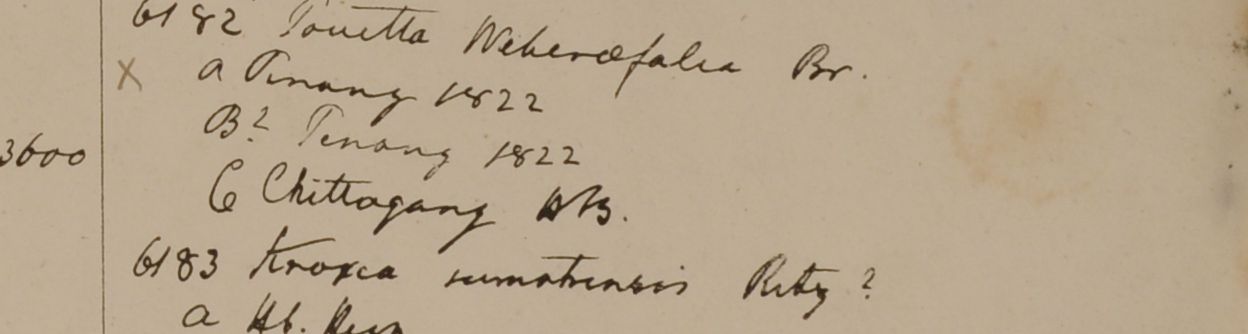 6182 Pavetta Weberæfolia Br.
X a Penang 1822
B? Penang 1822
3600
C Chittagong HB.
6183 Knoxea sumatrensis Retz?
a Hb.